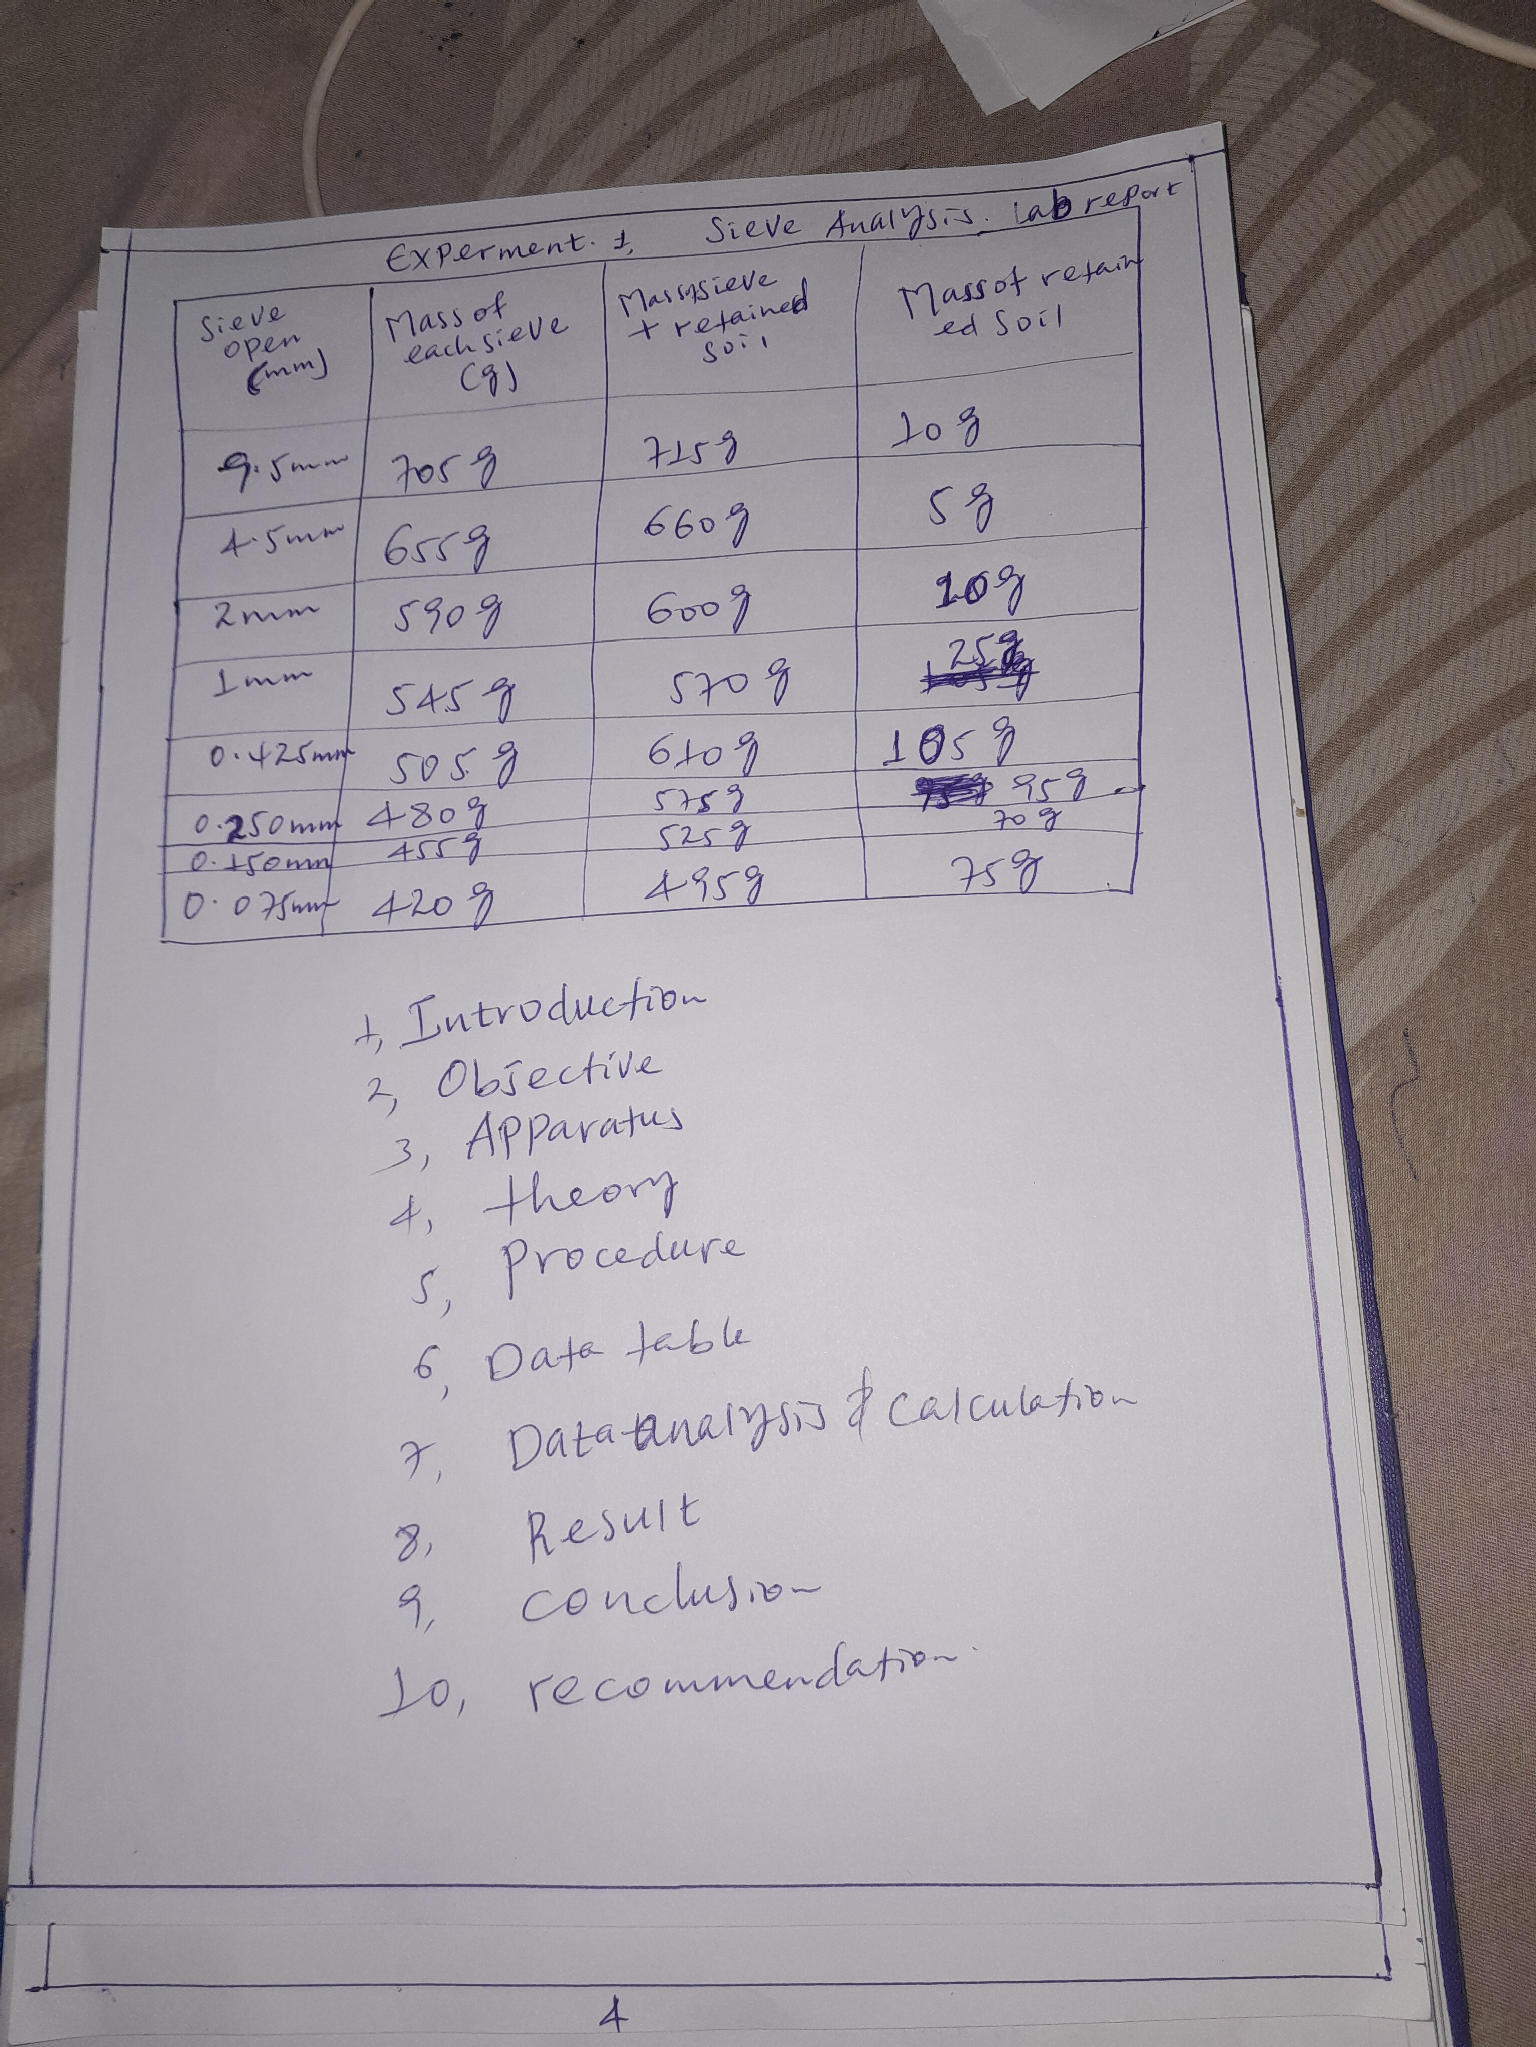 Experment. 1, Sieve Analysis. Lab report
Sieve open (mm) Mass of each sieve (g) Mass sieve + retained soil Mass of retained soil
9.5mm 705g 715g 10g
4.5mm 655g 660g 5g
2mm 590g 600g 10g
1mm 545g 570g 25g
0.425mm 505g 610g 105g
0.250mm 480g 575g 95g
0.150mm 455g 525g 70g
0.075mm 420g 495g 75g
1, Introduction
2, Objective
3, Apparatus
4, theory
5, Procedure
6, Data table
7, Data analysis & calculation
8, Result
9, conclusion
10, recommendation.
4